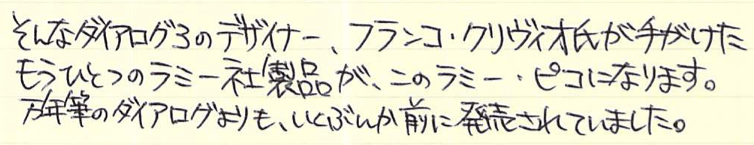 そんなダイアログ3のデザイナー、フランコ・クリヴィオ氏が手がけた
もうひとつのラミー社製品が、このラミー・ピコになります。
万年筆のダイアログよりも、いくぶんか前に発売されていました。